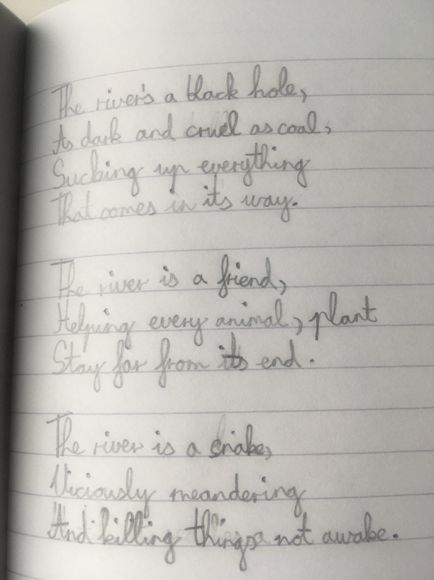 The river's a black hole,
As dark and cruel as coal,
Sucking up everything
That comes in its way.
The river is a friend,
Helping every animal, plant
Stay far from its end.
The river is a snake,
Viciously meandering
And killing things not awake.